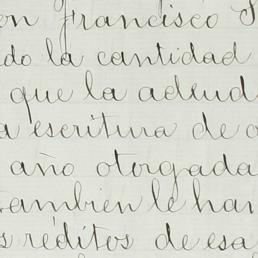 en Francisco S
do la cantidad
que la adeud
a escritura de o
año otorgada
tambien le han
s réditos de esa